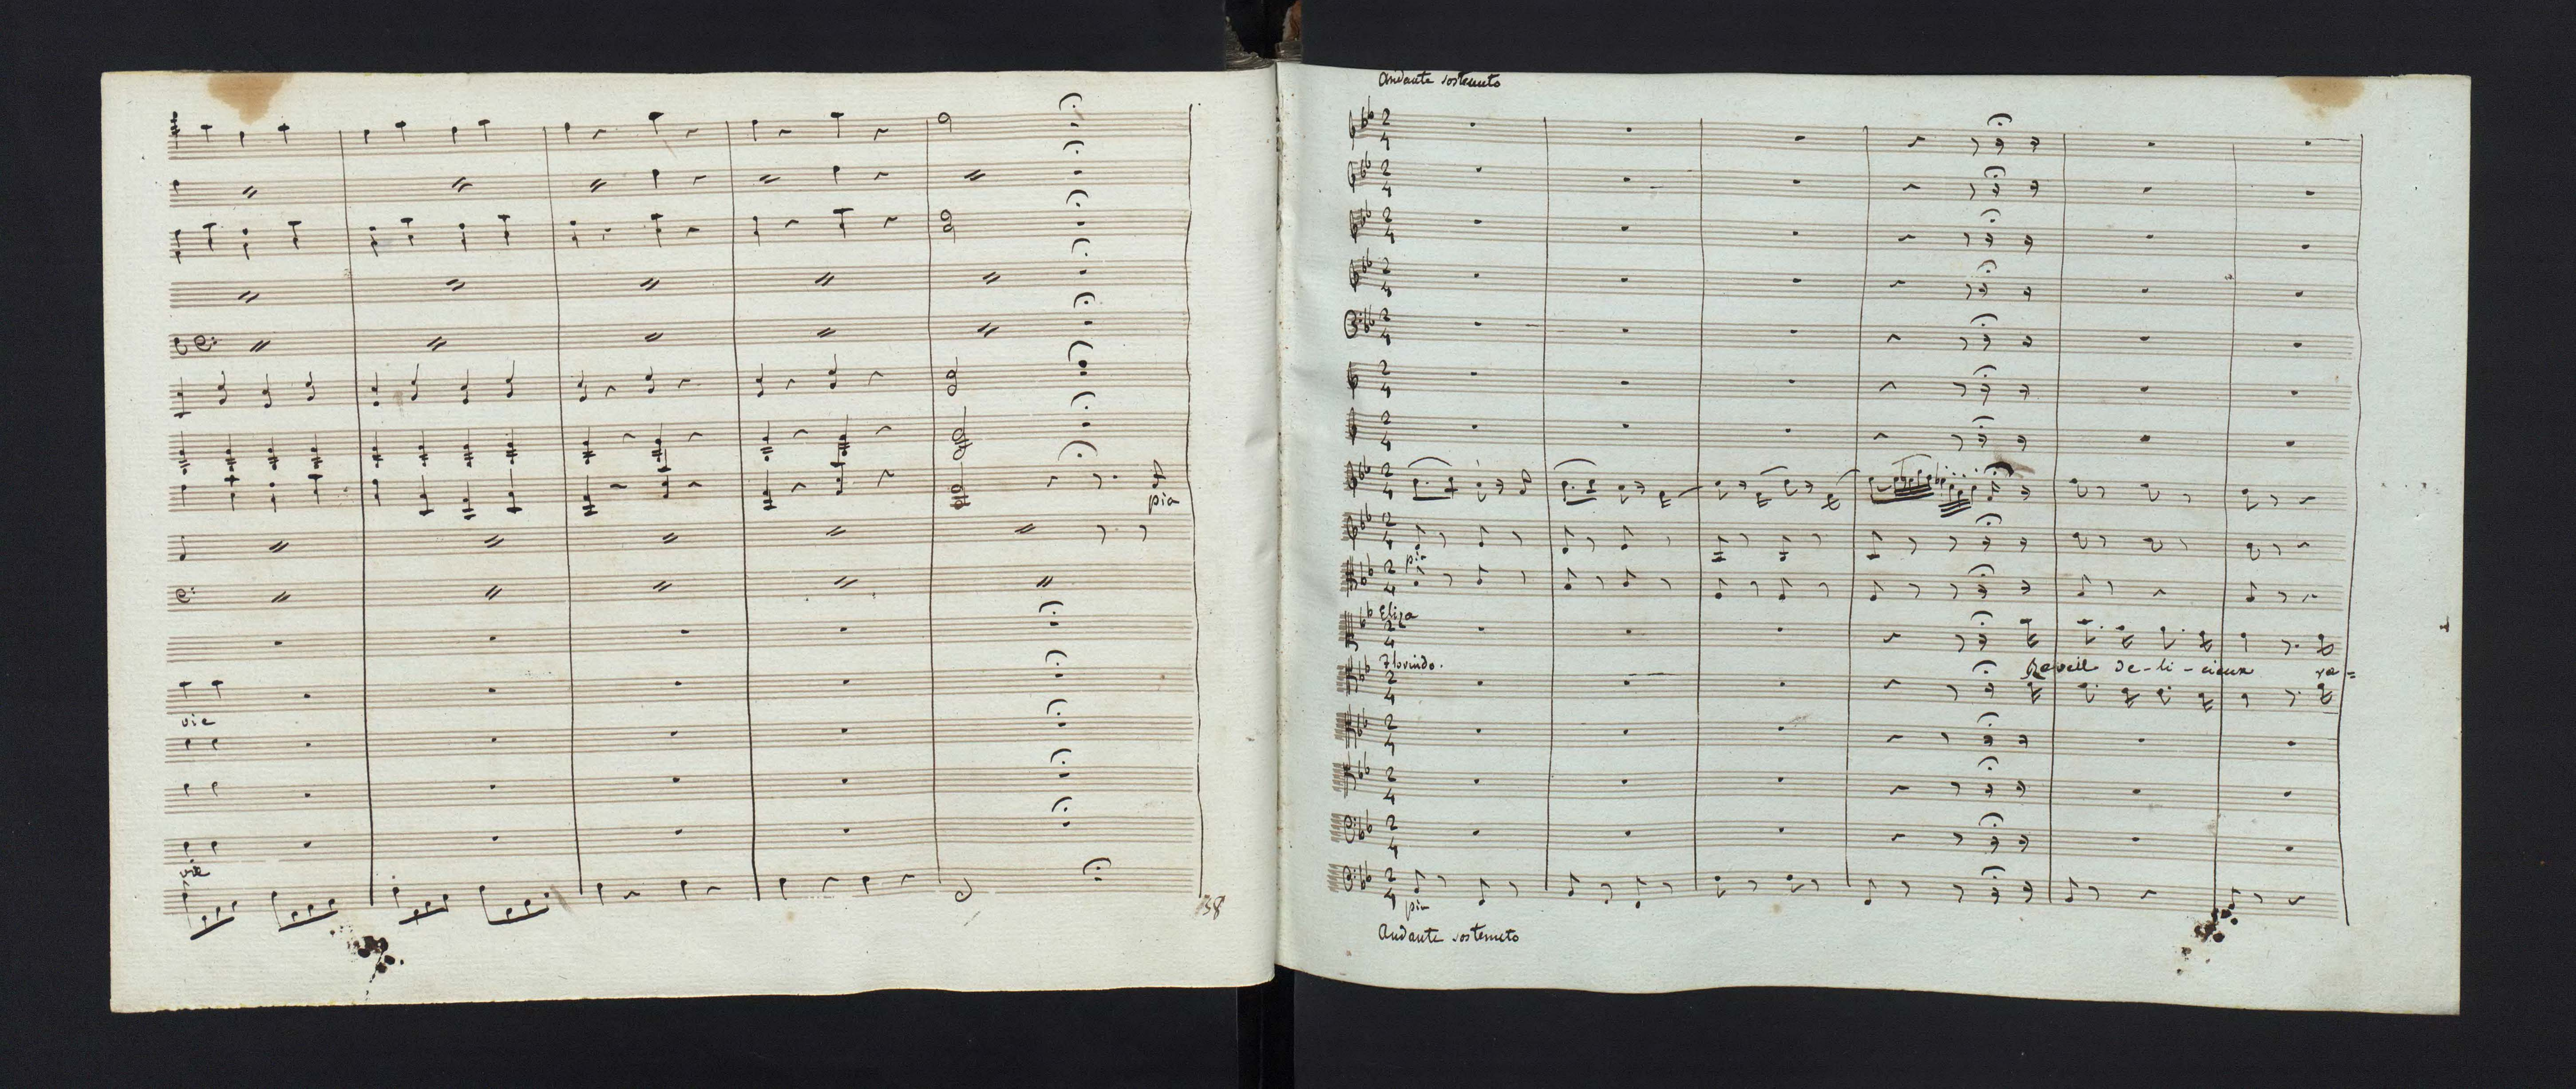 pia
vie
vie
38
Andante sostenuto
2
4
pia
Eliza
Florindo.
Reveil de-li-cieux re=
pia
Andante sostenuto